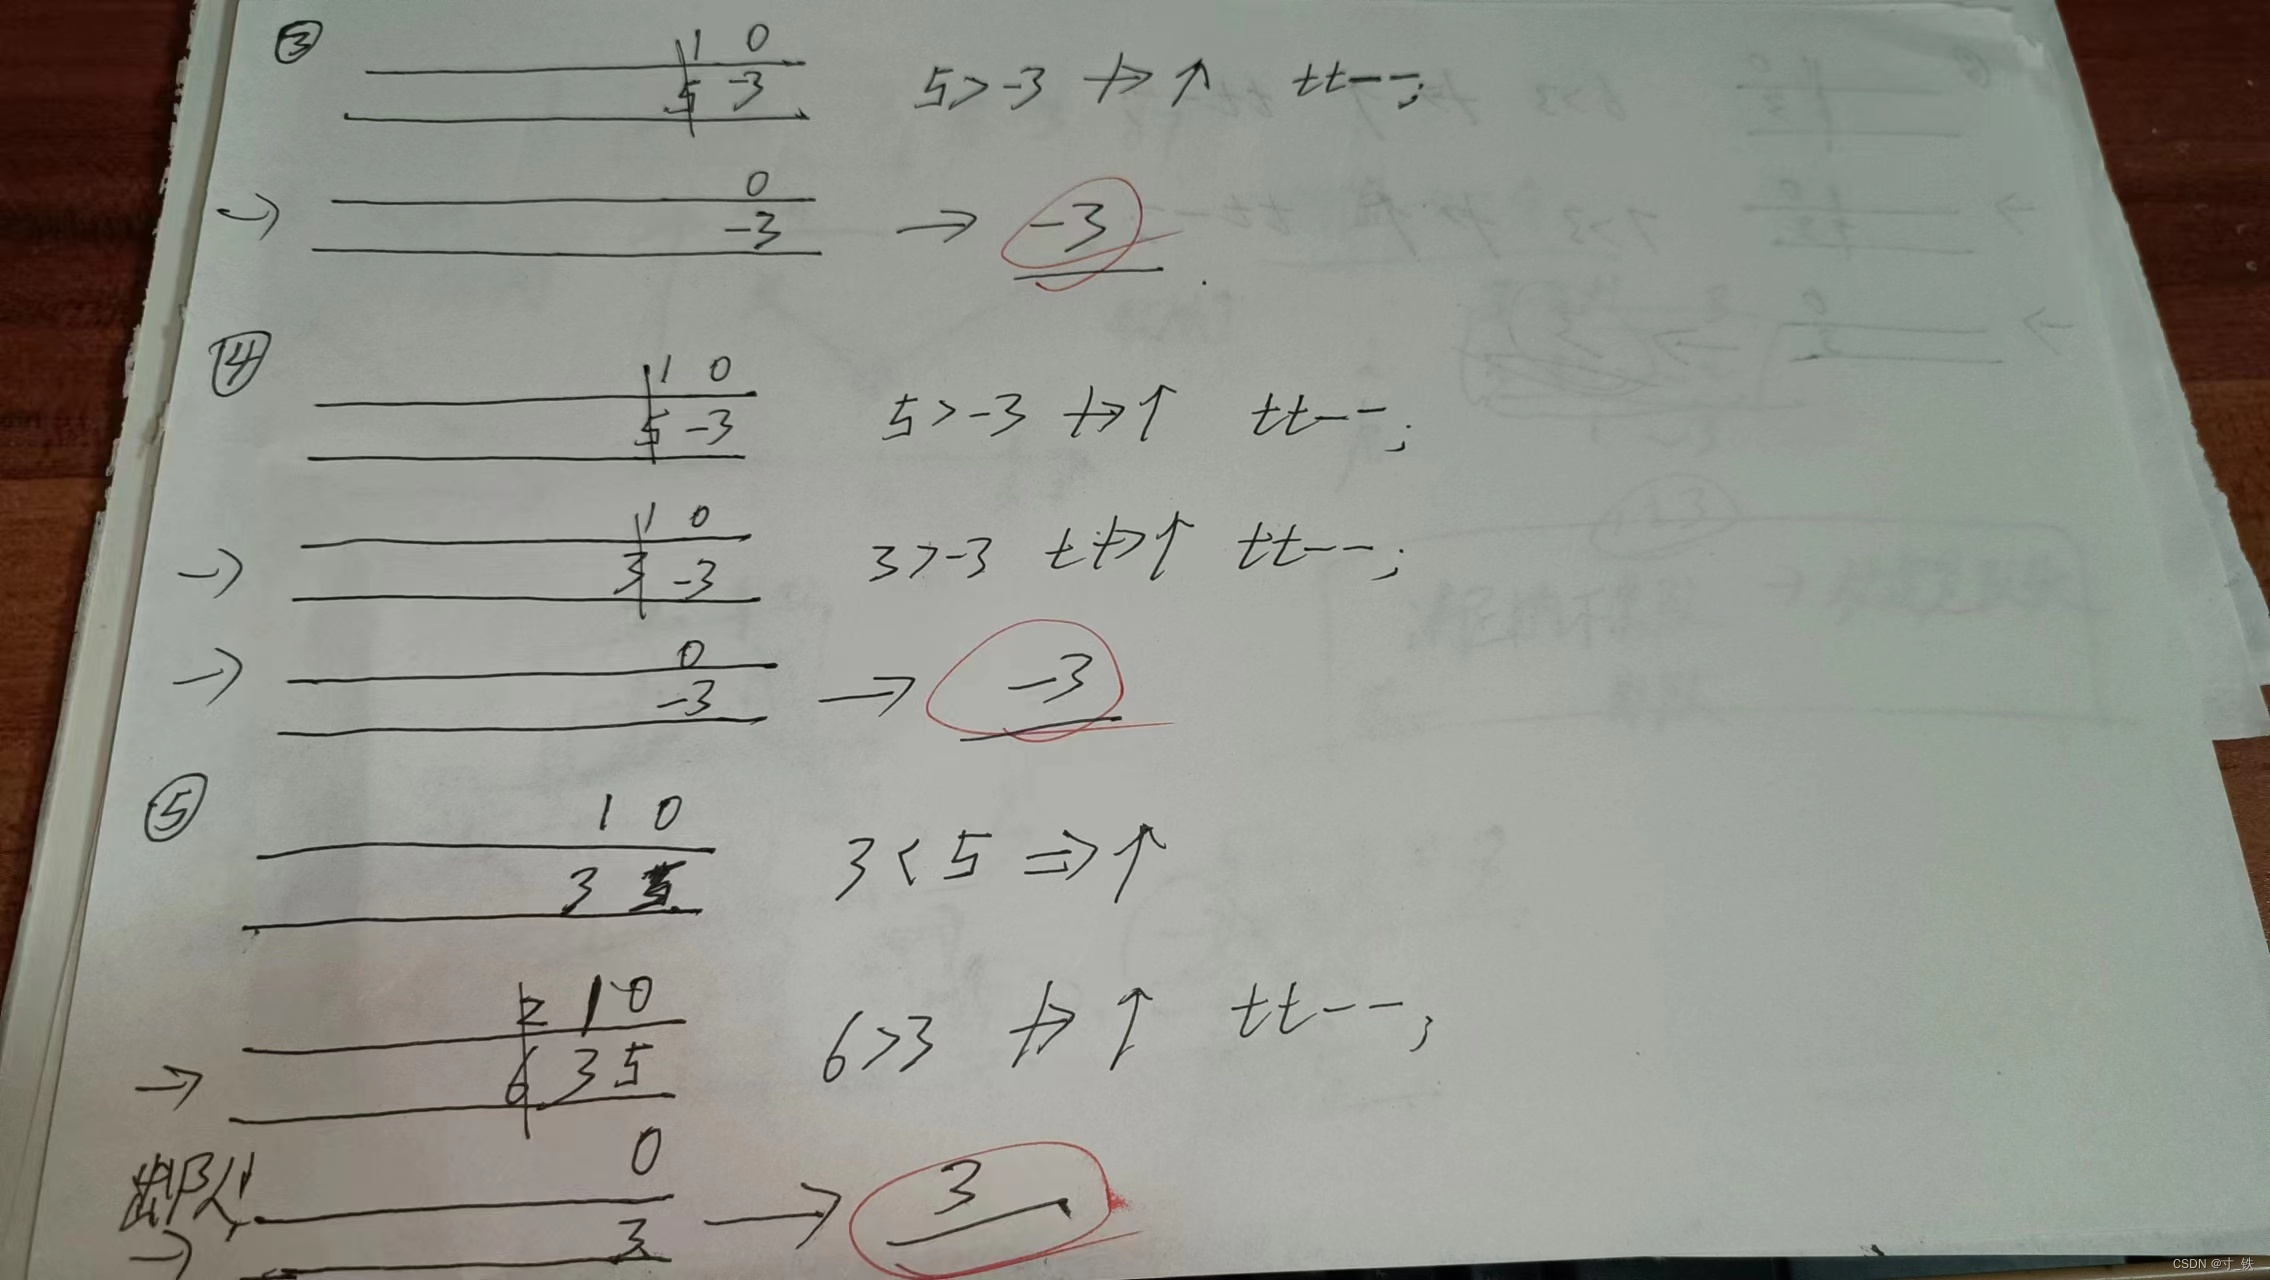 ③
1 0
5 -3 5>-3 ⇏↑ tt--;
0
→ -3 → -3
④
1 0
5 -3 5>-3 ⇏↑ tt--;
1 0
→ 3 -3 3>-3 t⇏↑ tt--;
0
→ -3 → -3
⑤
1 0
3 5 3<5 ⇒↑
2 1 0
→ 6 3 5 6>3 ⇏↑ tt--;
出队 0
→ 3 → 3
CSDN @寸_铁